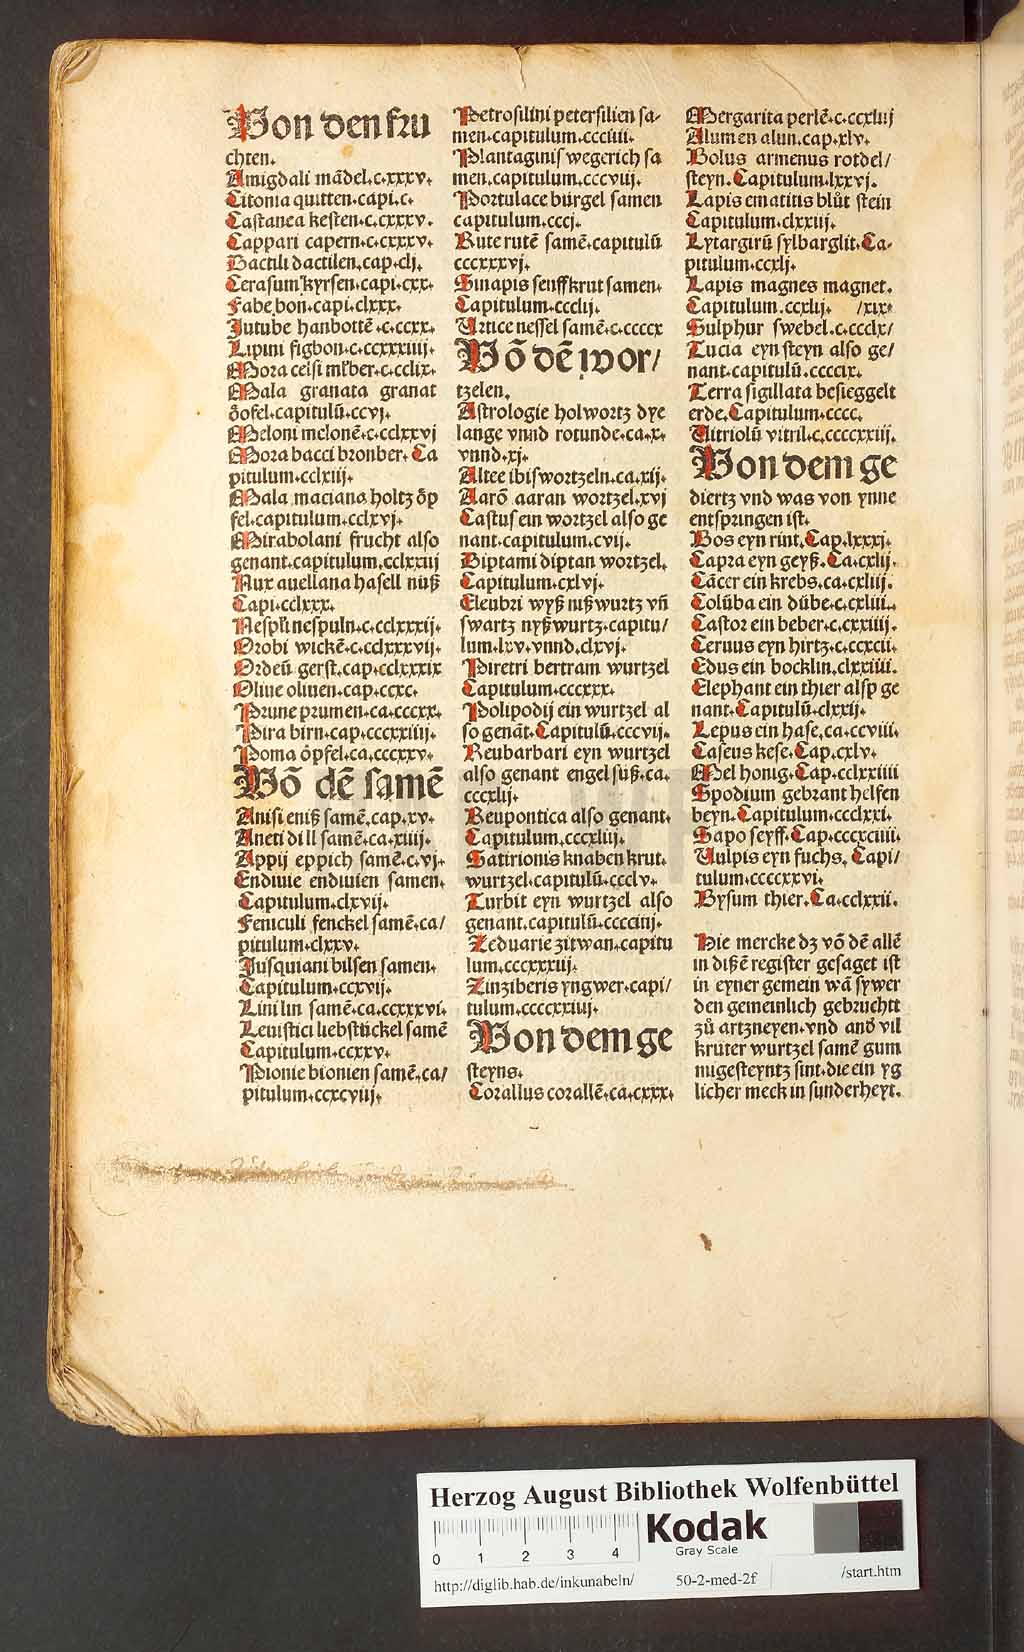 Von den fru
chten.
Amigdali mādel.c.xxxv.
Citonia quitten.capi.c.
Castanea kesten.c.cxxxv.
Cappari capern.c.cxxxv.
Dactili dactilen.cap.clj.
Cerasum kyrsen.capi.cxx.
Fabe bon.capi.clxxx.
Jutube hanbottē.c.ccxx.
Lipini figbon.c.ccxxxiiij.
Mora celsi
Mala granata granat
öpfel.capitulū.ccvj.
Meloni melonē.c.cclxxvj
Mora bacci bronber.Ca
pitulum.cclxiij.
Mala maciana holtz öp
fel.capitulum.cclxvj.
Mirabolani frucht also
genant.capitulum.cclxxiij
Nux auellana hasell nuß
Capi.cclxxx.
Nespli nespuln.c.cclxxxij.
Orobi wickē.c.clxxxvij.
Ordeū gerst.cap.cclxxxix
Oliue oliuen.cap.ccxc.
Prune prumen.ca.cccxx.
Pira birn.cap.cccxxiiij.
Poma öpfel.ca.cccxxv.
Vō dē samē
Anisi eniß samē.cap.xv.
Aneti dill samē.ca.xiiij.
Appij eppich samē.c.vj.
Endiuie endiuien samen.
Capitulum.clxvij.
Feniculi fenckel samē.ca/
pitulum.clxxv.
Jusquiani bilsen samen.
Capitulum.ccxvij.
Lini lin samē.ca.ccxxxvi.
Leuistici liebstickel samē
Capitulum.ccxxv.
Pionie bionien samē.ca/
pitulum.ccxcviij.
Petrosilini petersilien sa-
men.capitulum.ccciiii.
Plantaginis wegerich sa
men.capitulum.cccviij.
Portulace bürgel samen
capitulum.cccj.
Rute rutē samē.capitulū
cccxxxvj.
Sinapis senffkrut samen.
Capitulum.ccclij.
Vrtice nessel samē.c.ccccx
Vō dē wor/
tzelen.
Astrologie holwortz dye
lange vnnd rotunde.ca.x.
vnnd.xj.
Altee ibiswortzeln.ca.xij.
Aarō aaran wortzel.xvj
Castus ein wortzel also ge
nant.capitulum.cvij.
Diptami diptan wortzel.
Capitulum.cxlvj.
Eleubri wyß nißwurtz vñ
swartz nyßwurtz.capitu/
lum.lxv.vnnd.clxvj.
Piretri bertram wurtzel
Capitulum.cccxxx.
Polipodij ein wurtzel al
so genāt.Capitulū.cccvij.
Reubarbari eyn wurtzel
also genant engel süß.ca.
cccxlij.
Reupontica also genant.
Capitulum.cccxliij.
Satirionis knaben krut.
wurtzel.capitulū.ccclv.
Turbit eyn wurtzel also
genant.capitulū.cccciiij.
Zeduarie zitwan.capitu
lum.cccxxxiij.
Zinziberis yngwer.capi/
tulum.ccccxxiiij.
Von dem ge
steyns.
Corallus corallē.ca.cxxx.
Mergarita perlē.c.ccxliij
Alumen alun.cap.xlv.
Bolus armenus rotdel/
steyn.Capitulum.lxxvj.
Lapis ematitis blůt stein
Capitulum.clxxiij.
Lytargirū sylbarglit.Ca-
pitulum.ccxlj.
Lapis magnes magnet.
Capitulum.ccxlij. /xix.
Sulphur swebel.c.ccclx/
Tucia eyn steyn also ge/
nant.capitulū.ccccix.
Terra sigillata besieggelt
erde.Capitulum.cccc.
Vitriolū vitril.c.ccccxxiij.
Von dem ge
diertz vnd was von ynne
entspringen ist.
Bos eyn rint.Cap.lxxxj.
Capra eyn geyß.Ca.cxlij.
Cācer ein krebs.ca.cxliij.
Colūba ein dübe.c.cxliii.
Castor ein beber.c.cxxiiij.
Ceruus eyn hirtz.c.ccxcij.
Edus ein bocklin.clxxiiii.
Elephant ein thier also ge
nant.Capitulū.clxxij.
Lepus ein hase.ca.ccviii.
Caseus kese.Cap.cxlv.
Mel honig.Cap.cclxxiiii
Spodium gebrant helfen
beyn.Capitulum.ccclxxi.
Sapo seyff.Cap.cccxciiii.
Vulpis eyn fuchs. Capi/
tulum.ccccxxvi.
Bysum thier.Ca.cclxxii.
Hie mercke dz vō dē allē
in dißē register gesaget ist
in eyner gemein wā sywer
den gemeinlich gebruchtt
zů artzneyen.vnd and̕ vil
kruter wurtzel samē gum
mi gesteyntz sint.die ein yg
licher meck in sunderheyt.
Herzog August Bibliothek Wolfenbüttel
0 1 2 3 4
Kodak
Gray Scale
http://diglib.hab.de/inkunabeln/ 50-2-med-2f /start.htm